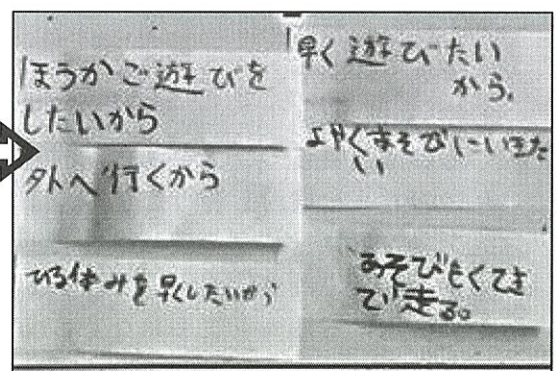 ほうかご遊びを
したいから
外へ行くから
ひる休みを早くしたいから
早く遊びたい
から。
はやくあそびにいきた
い
あそびもくてき
で走る。